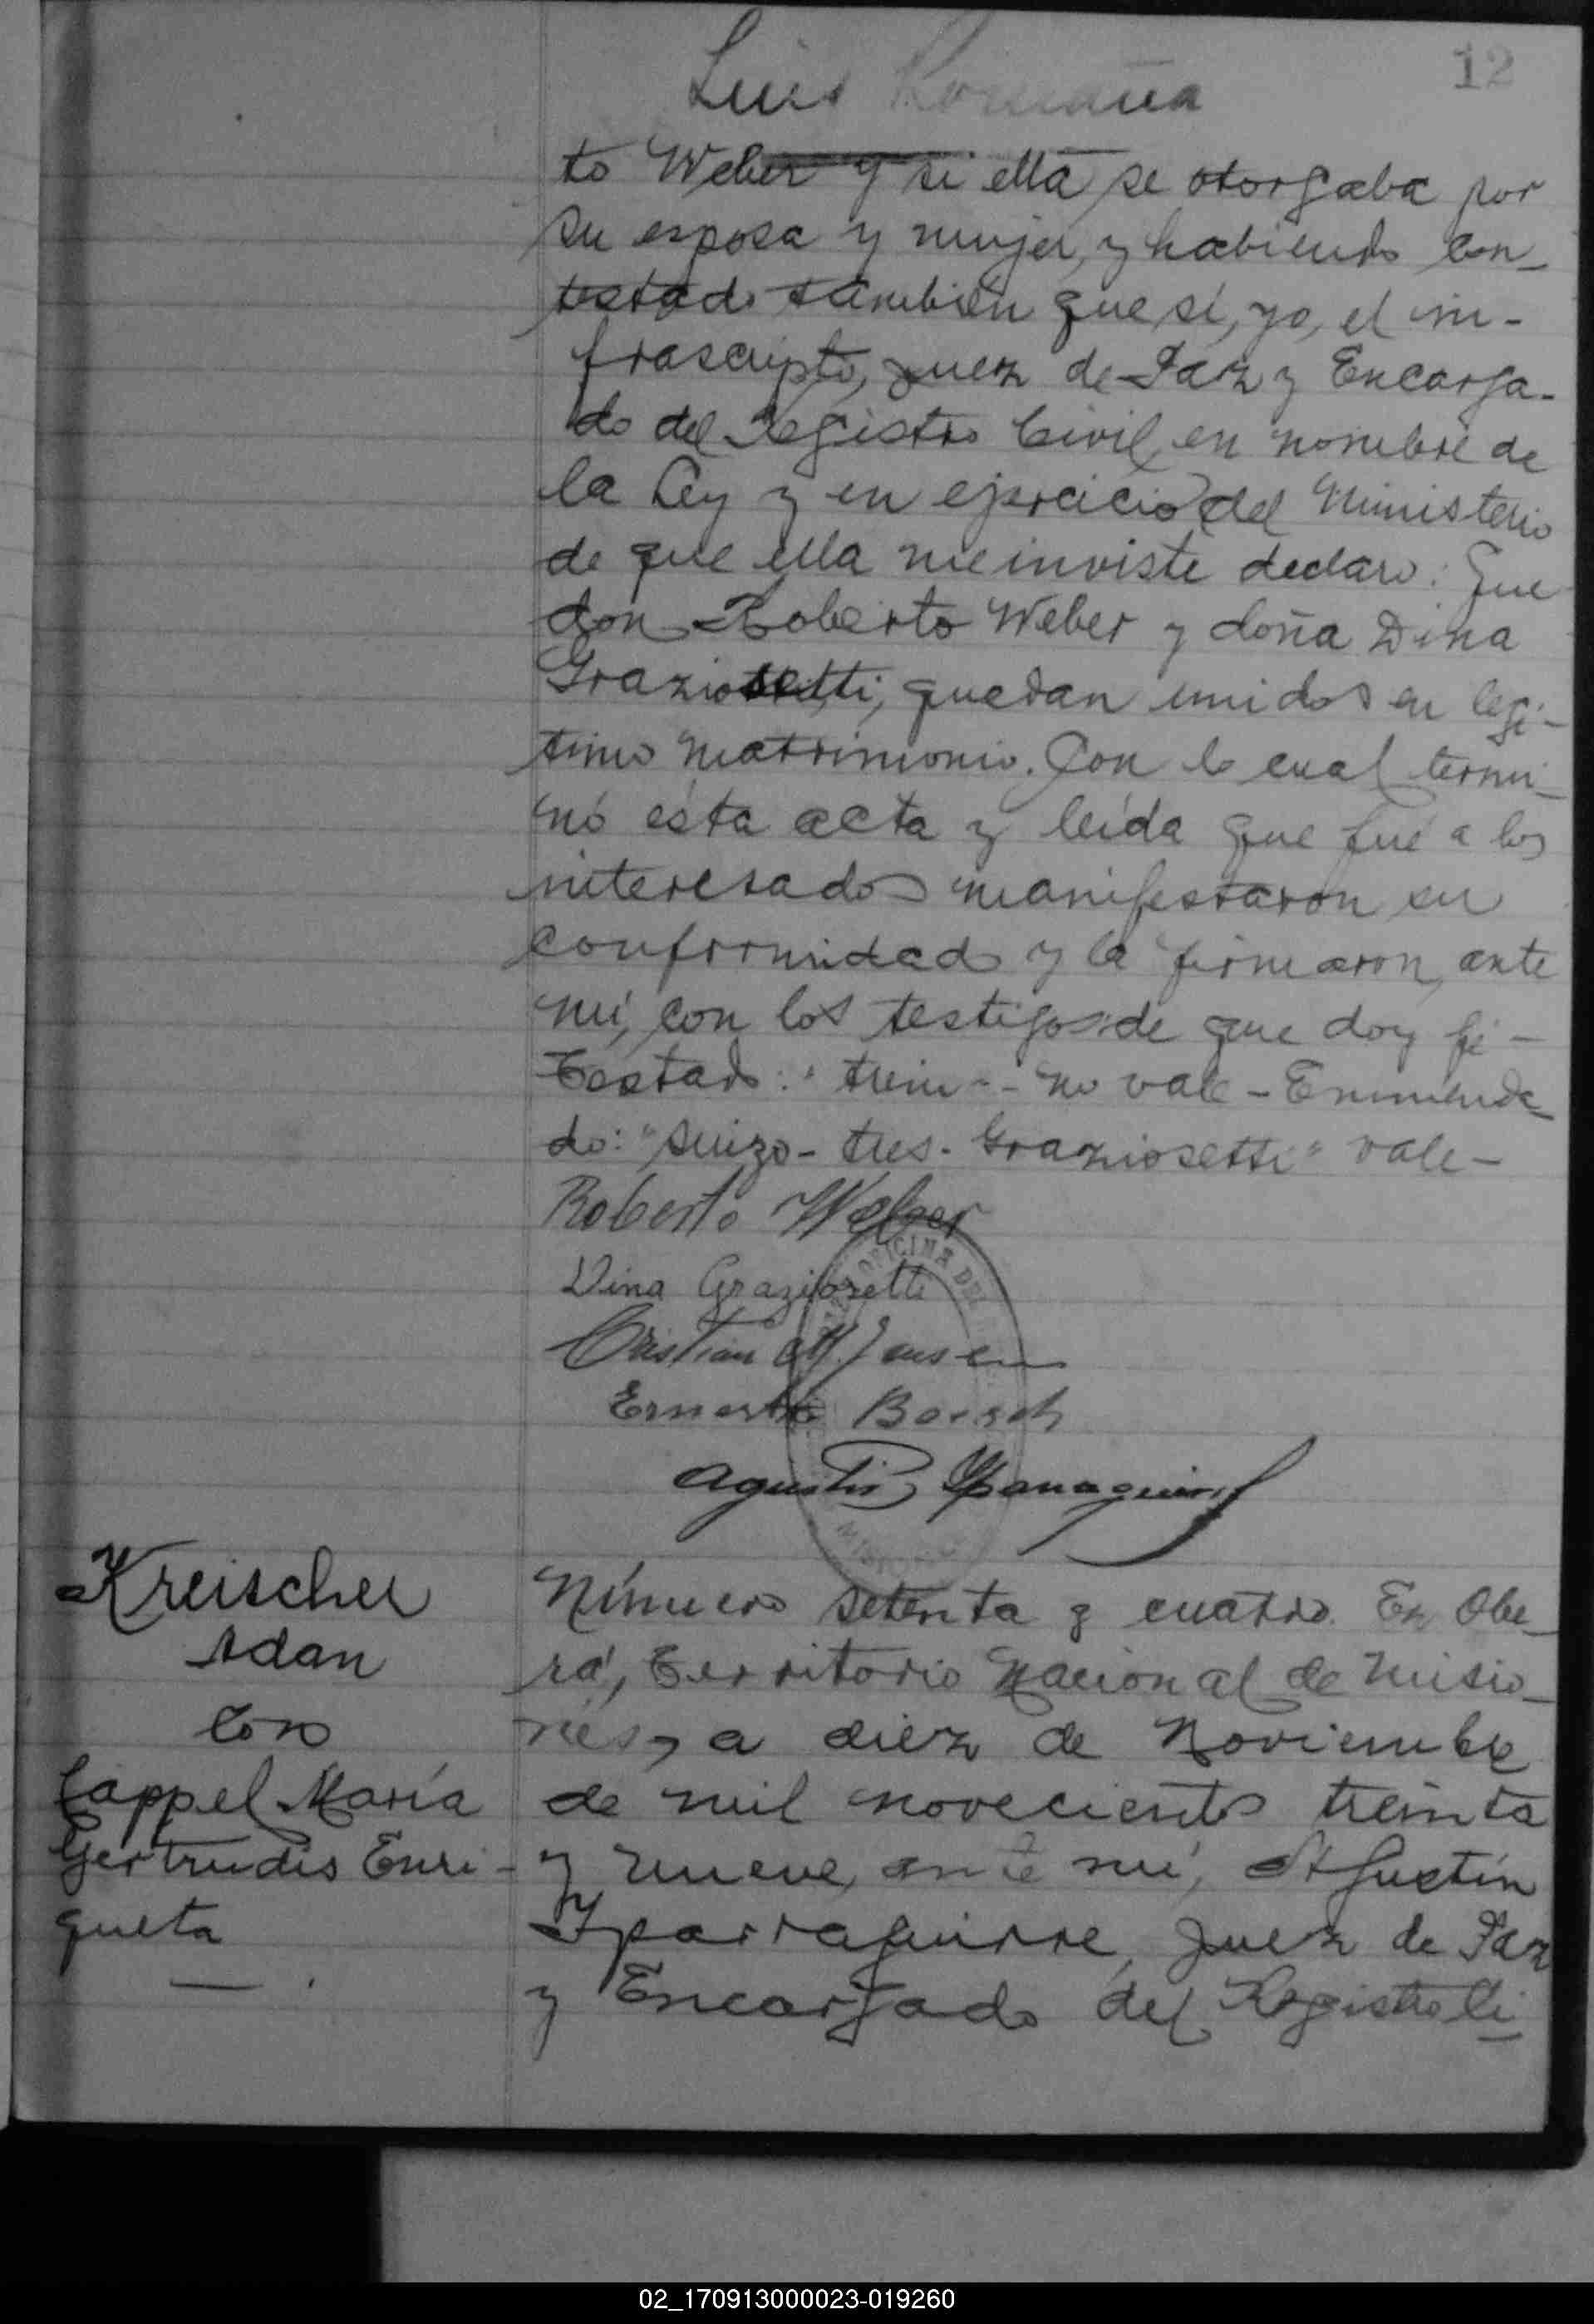 12
Luis Romaña
to Weber y si ella se otorgaba por
su esposa y mujer, y habiendo con-
testado también que sí, yo, el in-
frascripto, Juez de Paz y Encarga-
do del Registro Civil, en nombre de
la Ley y en ejercicio del Ministerio
de que ella me inviste declaro: Que
don Roberto Weber y doña Dina
Graziosetti, quedan unidos en legí-
timo matrimonio. Con lo cual termi-
nó ésta acta y leída que fué a los
interesados manifestaron su
conformidad y la firmaron, ante
mí, con los testigos de que doy fé -
Testado: "trein" - no vale - Enmenda-
do: "suizo - tres - Graziosetti" vale -
Roberto Weber
Dina Graziosetti
Cristian M. Jensen
Ernesto Boesch
OFICINA DEL
MISIONES
Agustin Yparraguirre
Kreischer
Adan
con
Cappel María
Gertrudis Enri-
queta
Número setenta y cuatro. En Obe-
rá, Territorio Nacional de Misio-
nes, a diez de Noviembre
de mil novecientos treinta
y nueve, ante mí, Agustín
Yparraguirre, Juez de Paz
y Encargado del Registro Ci-
02_170913000023-019260